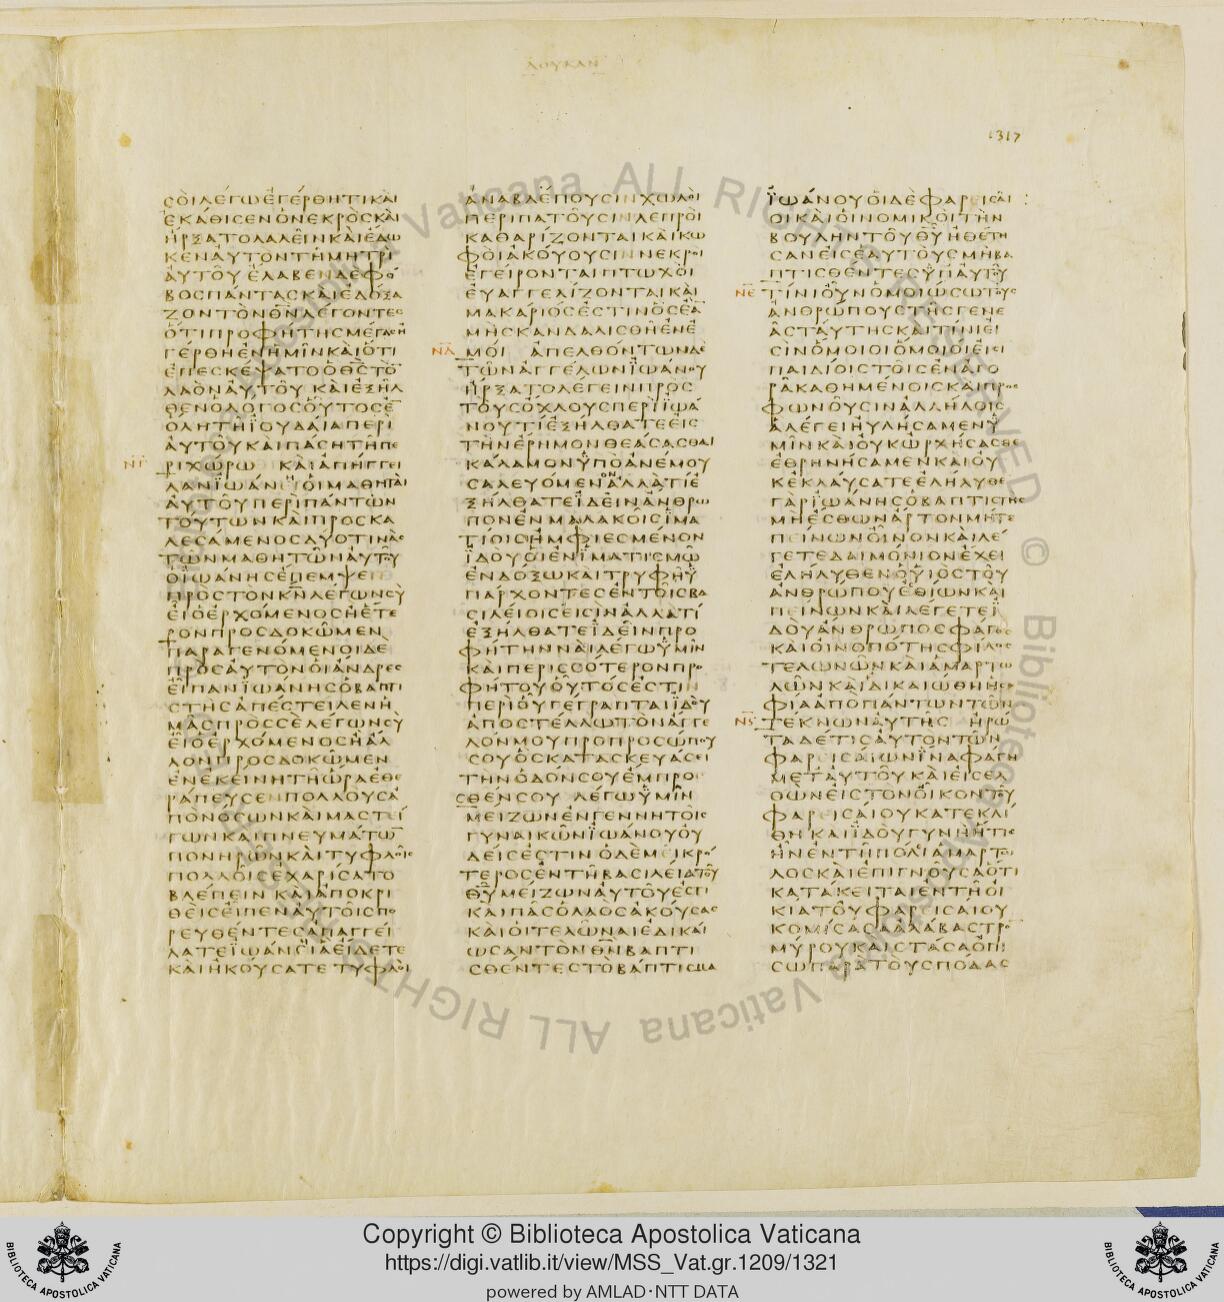 ΛΟΥΚΑΝ
1317
CΟΙ ΛΕΓΩ ΕΓΕΡΘΗΤΙ ΚΑΙ
ΕΚΑΘΙCΕΝ Ο ΝΕΚΡΟC ΚΑΙ
ΗΡΞΑΤΟ ΛΑΛΕΙΝ ΚΑΙ ΕΔΩ
ΚΕΝ ΑΥΤΟΝ ΤΗ ΜΗΤΡΙ
ΑΥΤΟΥ ΕΛΑΒΕΝ ΔΕ ΦΟ
ΒΟC ΠΑΝΤΑC ΚΑΙ ΕΔΟΞΑ
ΖΟΝ ΤΟΝ Θ̅Ν̅ ΛΕΓΟΝΤΕC
ΟΤΙ ΠΡΟΦΗΤΗC ΜΕΓΑC Η
ΓΕΡΘΗ ΕΝ ΗΜΙΝ ΚΑΙ ΟΤΙ
ΕΠΕCΚΕΨΑΤΟ Ο Θ̅C̅ ΤΟ̅
ΛΑΟΝ ΑΥΤΟΥ ΚΑΙ ΕΞΗΛ
ΘΕΝ Ο ΛΟΓΟC ΟΥΤΟC Ε̅
ΟΛΗ ΤΗ ΪΟΥΔΑΙΑ ΠΕΡΙ
ΑΥΤΟΥ ΚΑΙ ΠΑCΗ ΤΗ ΠΕ
Ν̅Γ̅ ΡΙΧΩΡΩ ΚΑΙ ΑΠΗΓΓΕΙ
ΛΑΝ ΪΩΑΝΕΙ ΟΙ ΜΑΘΗΤΑΙ
ΑΥΤΟΥ ΠΕΡΙ ΠΑΝΤΩΝ
ΤΟΥΤΩΝ ΚΑΙ ΠΡΟCΚΑ
ΛΕCΑΜΕΝΟC ΔΥΟ ΤΙΝΑC
ΤΩΝ ΜΑΘΗΤΩΝ ΑΥΤΟΥ
Ο ΪΩΑΝΗC ΕΠΕΜΨΕΝ
ΠΡΟC ΤΟΝ Κ̅Ν̅ ΛΕΓΩΝ CΥ
ΕΙ Ο ΕΡΧΟΜΕΝΟC Η ΕΤΕ
ΡΟΝ ΠΡΟCΔΟΚΩΜΕΝ
ΠΑΡΑΓΕΝΟΜΕΝΟΙ ΔΕ
ΠΡΟC ΑΥΤΟΝ ΟΙ ΑΝΔΡΕC
ΕΙΠΑΝ ΪΩΑΝΗC Ο ΒΑΠΤΙ
CΤΗC ΑΠΕCΤΕΙΛΕΝ Η
ΜΑC ΠΡΟC CΕ ΛΕΓΩΝ CΥ
ΕΙ Ο ΕΡΧΟΜΕΝΟC Η ΑΛ
ΛΟΝ ΠΡΟCΔΟΚΩΜΕΝ
ΕΝ ΕΚΕΙΝΗ ΤΗ ΩΡΑ ΕΘΕ
ΡΑΠΕΥCΕΝ ΠΟΛΛΟΥC Α
ΠΟ ΝΟCΩΝ ΚΑΙ ΜΑCΤΕΙ
ΓΩΝ ΚΑΙ ΠΝΕΥΜΑΤΩ̅
ΠΟΝΗΡΩΝ ΚΑΙ ΤΥΦΛΟΙC
ΠΟΛΛΟΙC ΕΧΑΡΙCΑΤΟ
ΒΛΕΠΕΙΝ ΚΑΙ ΑΠΟΚΡΙ
ΘΕΙC ΕΙΠΕΝ ΑΥΤΟΙC ΠΟ
ΡΕΥΘΕΝΤΕC ΑΠΑΓΓΕΙ
ΛΑΤΕ ΪΩΑΝΕΙ Α ΕΙΔΕΤΕ
ΚΑΙ ΗΚΟΥCΑΤΕ ΤΥΦΛΟΙ
ΑΝΑΒΛΕΠΟΥCΙΝ ΧΩΛΟΙ
ΠΕΡΙΠΑΤΟΥCΙΝ ΛΕΠΡΟΙ
ΚΑΘΑΡΙΖΟΝΤΑΙ ΚΑΙ ΚΩ
ΦΟΙ ΑΚΟΥΟΥCΙΝ ΝΕΚΡΟΙ
ΕΓΕΙΡΟΝΤΑΙ ΠΤΩΧΟΙ
ΕΥΑΓΓΕΛΙΖΟΝΤΑΙ ΚΑΙ
ΜΑΚΑΡΙΟC ΕCΤΙΝ ΟC ΕΑ̅
ΜΗ CΚΑΝΔΑΛΙCΘΗ ΕΝ Ε
Ν̅Δ̅ ΜΟΙ ΑΠΕΛΘΟΝΤΩΝ ΔΕ
ΤΩΝ ΑΓΓΕΛΩΝ ΪΩΑΝΟΥ
ΗΡΞΑΤΟ ΛΕΓΕΙΝ ΠΡΟC
ΤΟΥC ΟΧΛΟΥC ΠΕΡΙ ΪΩΑ
ΝΟΥ ΤΙ ΕΞΗΛΘΑΤΕ ΕΙC
ΤΗΝ ΕΡΗΜΟΝ ΘΕΑCΑCΘΑΙ
ΚΑΛΑΜΟΝ ΫΠΟ ΑΝΕΜΟΥ
CΑΛΕΥΟΜΕΝΟΝ ΑΛΛΑ ΤΙ Ε
ΞΗΛΘΑΤΕ ΪΔΕΙΝ ΑΝΘΡΩ
ΠΟΝ ΕΝ ΜΑΛΑΚΟΙC ΪΜΑ
ΤΙΟΙC ΗΜΦΙΕCΜΕΝΟΝ
ΪΔΟΥ ΟΙ ΕΝ ΪΜΑΤΙCΜΩ
ΕΝΔΟΞΩ ΚΑΙ ΤΡΥΦΗ Ϋ
ΠΑΡΧΟΝΤΕC ΕΝ ΤΟΙC ΒΑ
CΙΛΕΙΟΙC ΕΙCΙΝ ΑΛΛΑ ΤΙ
ΕΞΗΛΘΑΤΕ ΪΔΕΙΝ ΠΡΟ
ΦΗΤΗΝ ΝΑΙ ΛΕΓΩ ΫΜΙΝ
ΚΑΙ ΠΕΡΙCCΟΤΕΡΟΝ ΠΡΟ
ΦΗΤΟΥ ΟΥΤΟC ΕCΤΙΝ
ΠΕΡΙ ΟΥ ΓΕΓΡΑΠΤΑΙ ΪΔΟΥ
ΑΠΟCΤΕΛΛΩ ΤΟΝ ΑΓΓΕ
ΛΟΝ ΜΟΥ ΠΡΟ ΠΡΟCΩΠΟΥ
CΟΥ ΟC ΚΑΤΑCΚΕΥΑCΕΙ
ΤΗΝ ΟΔΟΝ CΟΥ ΕΜΠΡΟ
CΘΕΝ CΟΥ ΛΕΓΩ ΫΜΙΝ
ΜΕΙΖΩΝ ΕΝ ΓΕΝΝΗΤΟΙC
ΓΥΝΑΙΚΩΝ ΪΩΑΝΟΥ ΟΥ
ΔΕΙC ΕCΤΙΝ Ο ΔΕ ΜΕΙΚΡΟ
ΤΕΡΟC ΕΝ ΤΗ ΒΑCΙΛΕΙΑ ΤΟΥ
Θ̅Υ̅ ΜΕΙΖΩΝ ΑΥΤΟΥ ΕCΤΙ
ΚΑΙ ΠΑC Ο ΛΑΟC ΑΚΟΥCΑC
ΚΑΙ ΟΙ ΤΕΛΩΝΑΙ ΕΔΙΚΑΙ
ΩCΑΝ ΤΟΝ Θ̅Ν̅ ΒΑΠΤΙ
CΘΕΝΤΕC ΤΟ ΒΑΠΤΙCΜΑ
ΪΩΑΝΟΥ ΟΙ ΔΕ ΦΑΡΕΙCΑΙ
ΟΙ ΚΑΙ ΟΙ ΝΟΜΙΚΟΙ ΤΗΝ
ΒΟΥΛΗΝ ΤΟΥ Θ̅Υ̅ ΗΘΕΤΗ
CΑΝ ΕΙC ΕΑΥΤΟΥC ΜΗ ΒΑ
ΠΤΙCΘΕΝΤΕC ΫΠ ΑΥΤΟΥ
Ν̅Ε̅ ΤΙΝΙ ΟΥΝ ΟΜΟΙΩCΩ ΤΟΥC
ΑΝΘΡΩΠΟΥC ΤΗC ΓΕΝΕ
ΑC ΤΑΥΤΗC ΚΑΙ ΤΙΝΙ ΕΙ
CΙΝ ΟΜΟΙΟΙ ΟΜΟΙΟΙ ΕΙCΙ
ΠΑΙΔΙΟΙC ΤΟΙC ΕΝ ΑΓΟ
ΡΑ ΚΑΘΗΜΕΝΟΙC ΚΑΙ ΠΡΟC
ΦΩΝΟΥCΙΝ ΑΛΛΗΛΟΙC
Α ΛΕΓΕΙ ΗΥΛΗCΑΜΕΝ Ϋ
ΜΙΝ ΚΑΙ ΟΥΚ ΩΡΧΗCΑCΘΕ
ΕΘΡΗΝΗCΑΜΕΝ ΚΑΙ ΟΥ
Κ ΕΚΛΑΥCΑΤΕ ΕΛΗΛΥΘΕ
ΓΑΡ ΪΩΑΝΗC Ο ΒΑΠΤΙCΤΗC
ΜΗ ΕCΘΩΝ ΑΡΤΟΝ ΜΗΤΕ
ΠΕΙΝΩΝ ΟΙΝΟΝ ΚΑΙ ΛΕ
ΓΕΤΕ ΔΑΙΜΟΝΙΟΝ ΕΧΕΙ
ΕΛΗΛΥΘΕΝ Ο ΥΙΟC ΤΟΥ
ΑΝΘΡΩΠΟΥ ΕCΘΙΩΝ ΚΑΙ
ΠΕΙΝΩΝ ΚΑΙ ΛΕΓΕΤΕ Ϊ
ΔΟΥ ΑΝΘΡΩΠΟC ΦΑΓΟC
ΚΑΙ ΟΙΝΟΠΟΤΗC ΦΙΛΟC
ΤΕΛΩΝΩΝ ΚΑΙ ΑΜΑΡΤΩ
ΛΩΝ ΚΑΙ ΕΔΙΚΑΙΩΘΗ Η CΟ
ΦΙΑ ΑΠΟ ΠΑΝΤΩΝ ΤΩΝ
Ν̅Ϛ̅ ΤΕΚΝΩΝ ΑΥΤΗC ΗΡΩ
ΤΑ ΔΕ ΤΙC ΑΥΤΟΝ ΤΩΝ
ΦΑΡΕΙCΑΙΩΝ ΪΝΑ ΦΑΓΗ
ΜΕΤ ΑΥΤΟΥ ΚΑΙ ΕΙCΕΛ
ΘΩΝ ΕΙC ΤΟΝ ΟΙΚΟΝ ΤΟΥ
ΦΑΡΕΙCΑΙΟΥ ΚΑΤΕΚΛΙ
ΘΗ ΚΑΙ ΪΔΟΥ ΓΥΝΗ ΗΤΙC
ΗΝ ΕΝ ΤΗ ΠΟΛΕΙ ΑΜΑΡΤΩ
ΛΟC ΚΑΙ ΕΠΙΓΝΟΥCΑ ΟΤΙ
ΚΑΤΑΚΕΙΤΑΙ ΕΝ ΤΗ ΟΙ
ΚΙΑ ΤΟΥ ΦΑΡΕΙCΑΙΟΥ
ΚΟΜΙCΑCΑ ΑΛΑΒΑCΤΡΟ̅
ΜΥΡΟΥ ΚΑΙ CΤΑCΑ ΟΠΙ
CΩ ΠΑΡΑ ΤΟΥC ΠΟΔΑC
Copyright © Biblioteca Apostolica Vaticana
https://digi.vatlib.it/view/MSS_Vat.gr.1209/1321
powered by AMLAD·NTT DATA